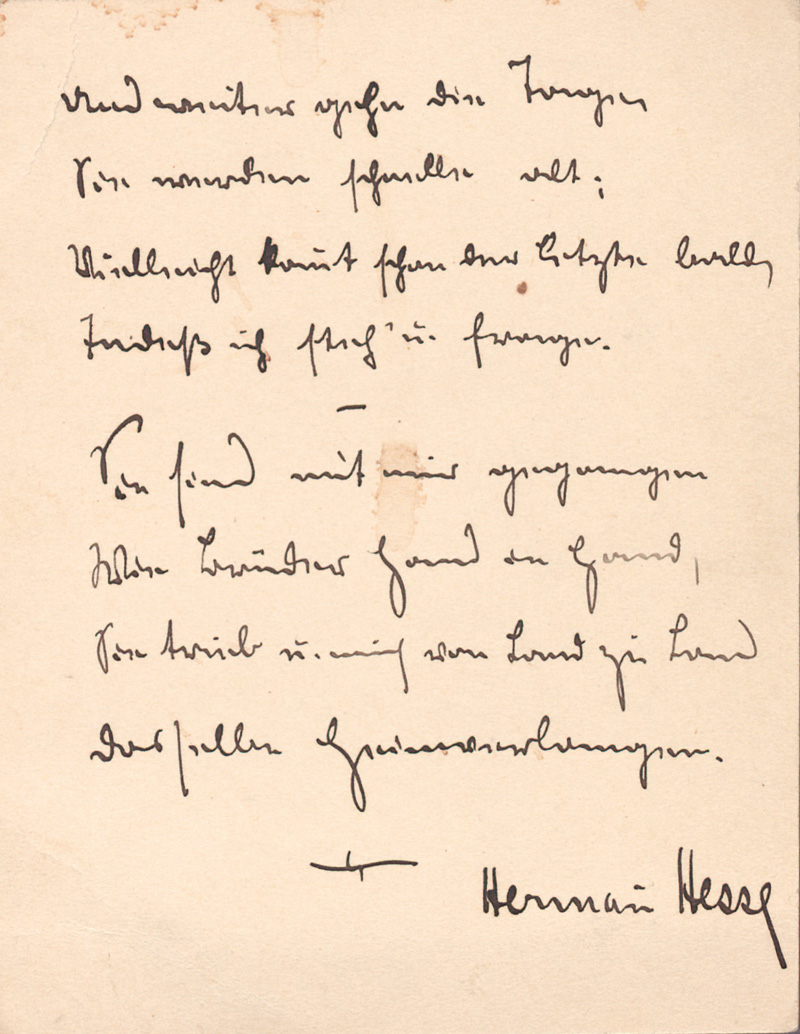 Und weiter gehn die Tage,
Sie werden schnelle alt;
Vielleicht kom̄t schon der letzte bald,
Indeß ich steh' u. frage.
–
Sie sind mit mir gegangen
Wie Brüder Hand in Hand,
Sie trieb u. mich von Land zu Land
Dasselbe Heimverlangen.
Herman̄ Hesse